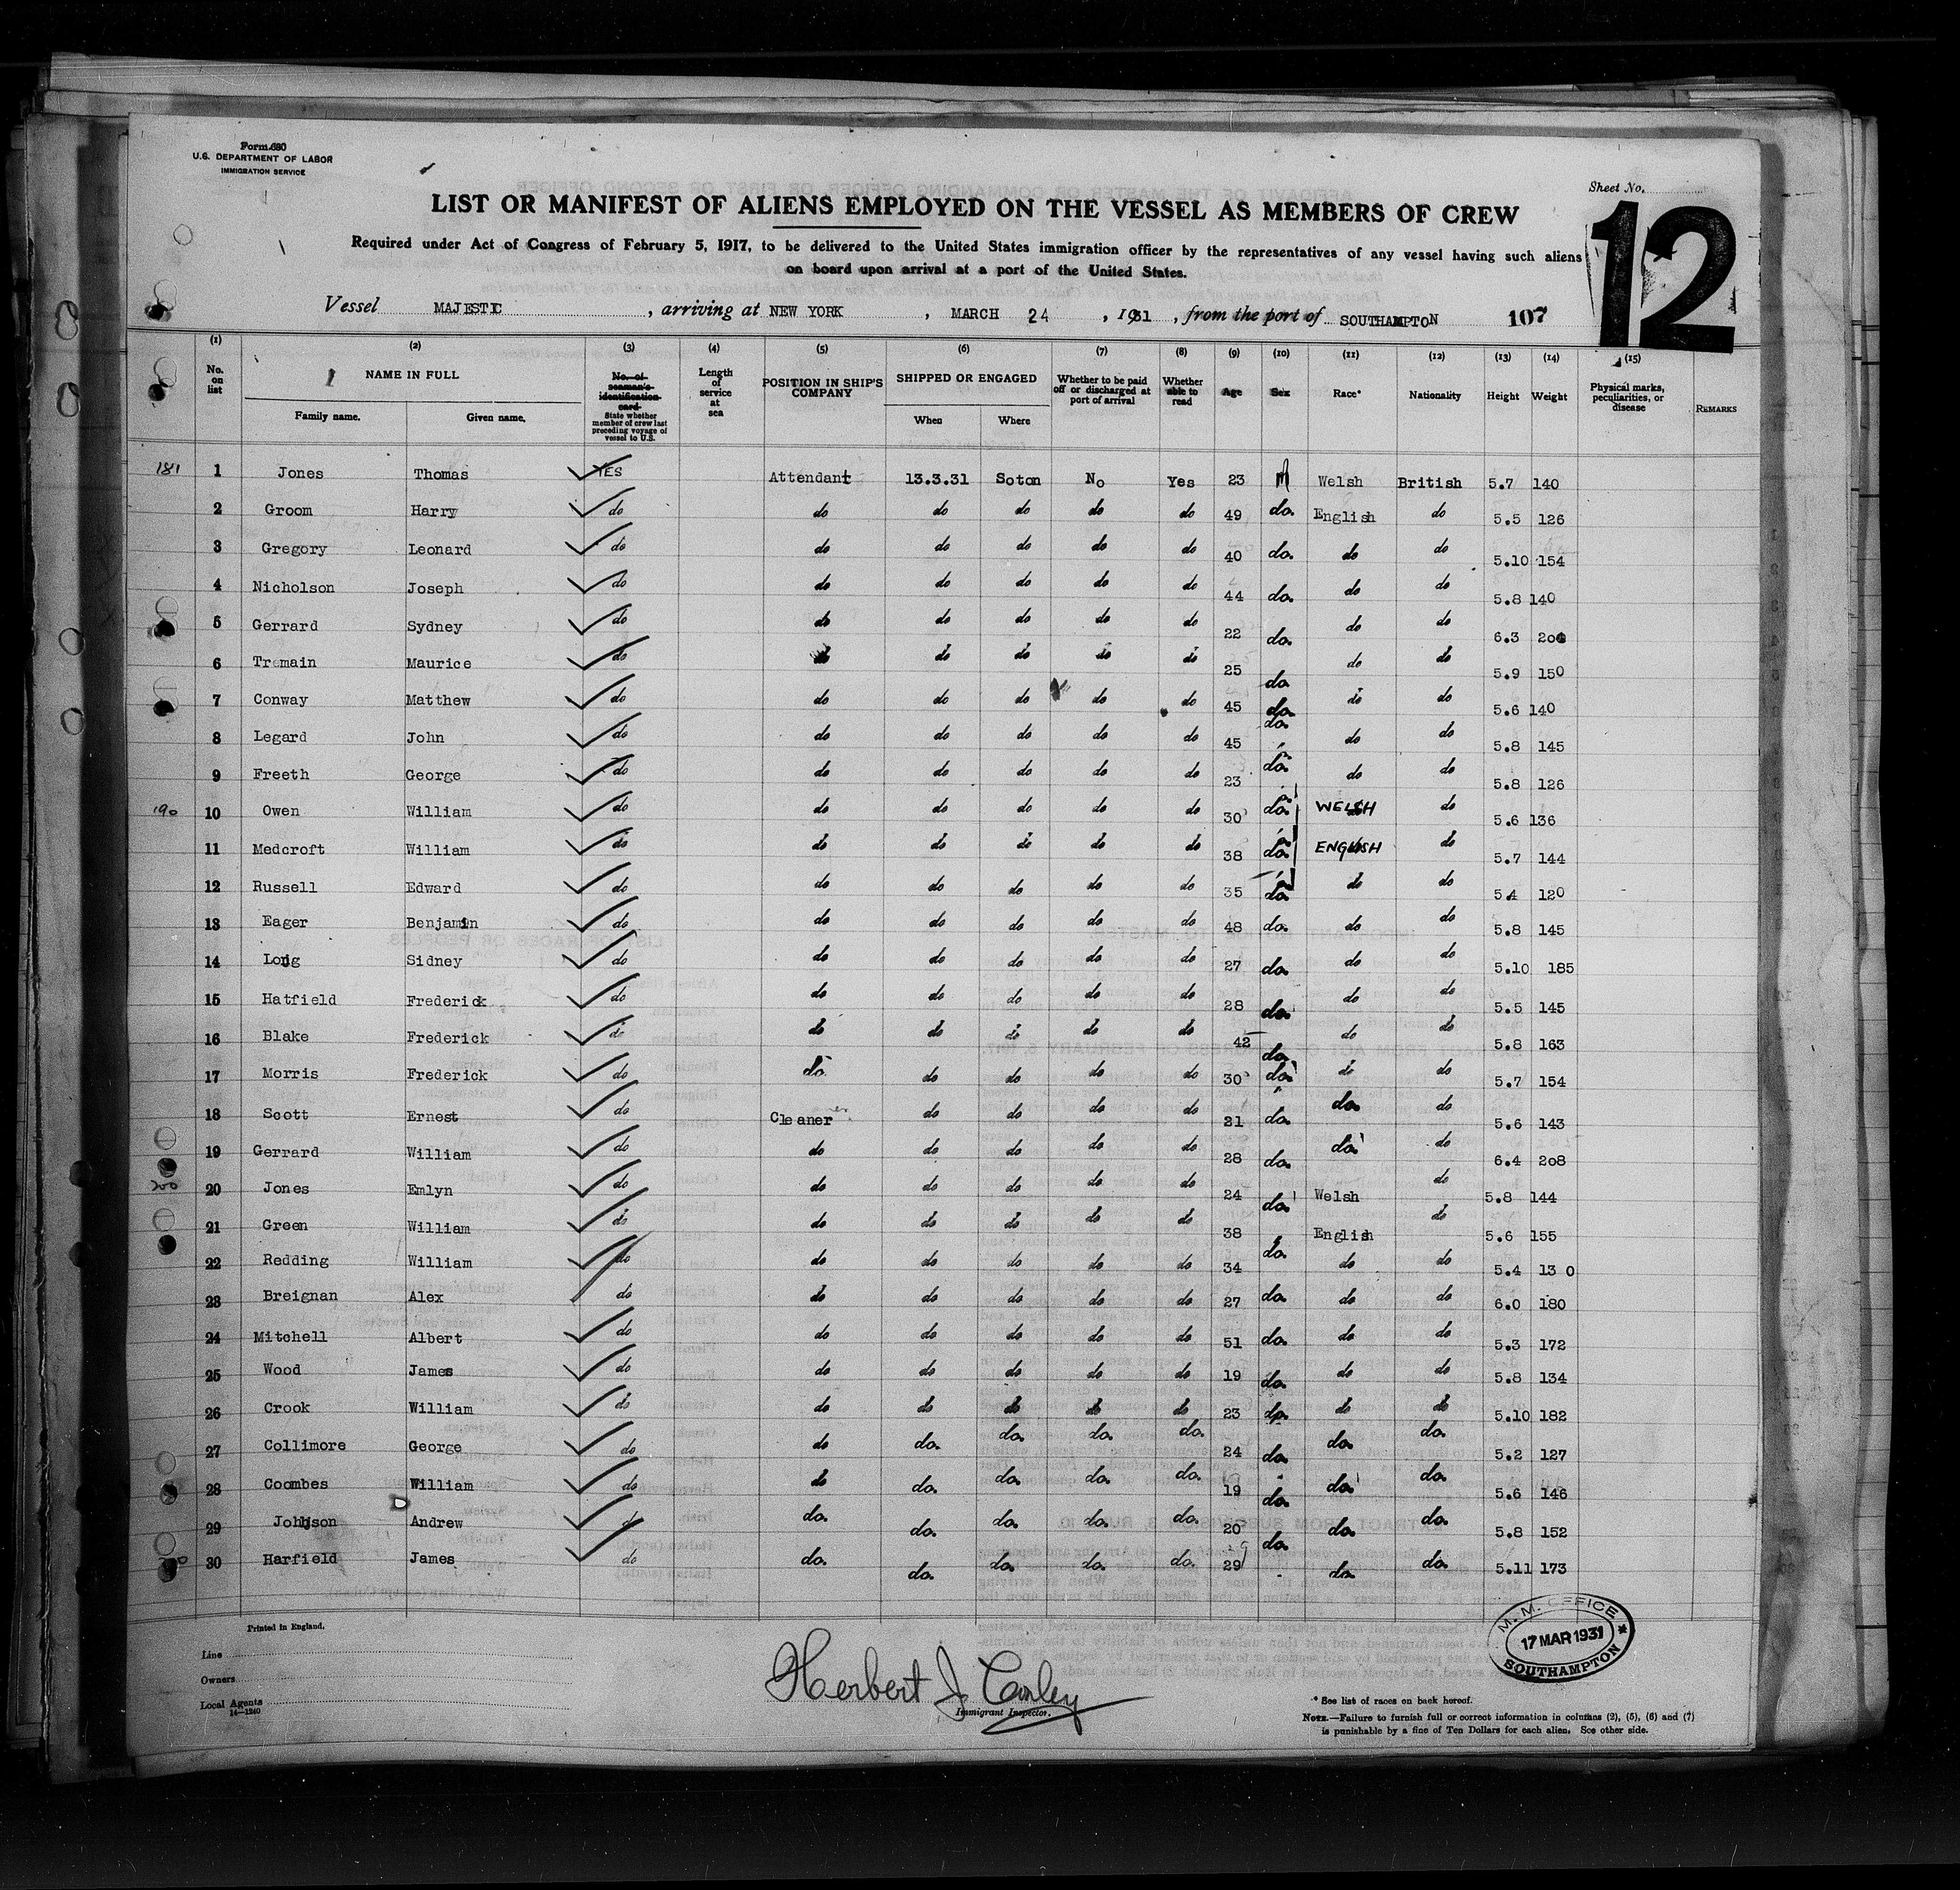 Form 680
U.S. DEPARTMENT OF LABOR
IMMIGRATION SERVICE
Sheet No.
12
LIST OR MANIFEST OF ALIENS EMPLOYED ON THE VESSEL AS MEMBERS OF CREW
Required under Act of Congress of February 5, 1917, to be delivered to the United States immigration officer by the representatives of any vessel having such aliens
on board upon arrival at a port of the United States.
Vessel MAJESTIC, arriving at NEW YORK, MARCH 24, 1931, from the port of SOUTHAMPTON 107
(1) (2) (3) (4) (5) (6) (7) (8) (9) (10) (11) (12) (13) (14) (15)
No. on list NAME IN FULL Family name. Given name. No. of seaman's identification card State whether member of crew last preceding voyage of vessel to U.S. Length of service at sea POSITION IN SHIP'S COMPANY SHIPPED OR ENGAGED When Where Whether to be paid off or discharged at port of arrival Whether able to read Age Sex Race* Nationality Height Weight Physical marks, peculiarities, or disease REMARKS
181 1 Jones Thomas YES Attendant 13.3.31 Soton No Yes 23 M Welsh British 5.7 140
2 Groom Harry do do do do do do 49 do. English do 5.5 126
3 Gregory Leonard do do do do do do 40 do. do do 5.10 154
4 Nicholson Joseph do do do do do do 44 do. do do 5.8 140
5 Gerrard Sydney do do do do do do 22 do. do do 6.3 200
6 Tremain Maurice do do do do do do 25 do. do do 5.9 150
7 Conway Matthew do do do do do do 45 do. do do 5.6 140
8 Legard John do do do do do do 45 do. do do 5.8 145
9 Freeth George do do do do do do 23 do. do do 5.8 126
190 10 Owen William do do do do do do 30 do. WELSH do 5.6 136
11 Medcroft William do do do do do do 38 do. ENGLISH do 5.7 144
12 Russell Edward do do do do do do 35 do. do do 5.4 120
13 Eager Benjamin do do do do do do 48 do. do do 5.8 145
14 Long Sidney do do do do do do 27 do. do do 5.10 185
15 Hatfield Frederick do do do do do do 28 do. do do 5.5 145
16 Blake Frederick do do do do do do 42 do. do do 5.8 163
17 Morris Frederick do do. do do do do 30 do. do do 5.7 154
18 Scott Ernest do Cleaner do do do do 21 do. do. do 5.6 143
19 Gerrard William do do do do do do 28 do. do. do 6.4 208
200 20 Jones Emlyn do do do do do do 24 do. Welsh do 5.8 144
21 Green William do do do do do do 38 do. English do 5.6 155
22 Redding William do do do do do do 34 do. do do 5.4 130
23 Breignan Alex do do do do do do 27 do. do do 6.0 180
24 Mitchell Albert do do do do do do 51 do. do do 5.3 172
25 Wood James do do do do do do 19 do. do do 5.8 134
26 Crook William do do do do do do 23 do. do do 5.10 182
27 Collimore George do do do. do. do. do. 24 do. do. do. 5.2 127
28 Coombes William do do do. do. do. do. 19 do. do. do. 5.6 146
29 Johnson Andrew do do. do. do. do. do. 20 do. do. do. 5.8 152
30 Harfield James do do. do. do. do. do. 29 do. do. 5.11 173
Printed in England.
Line
Owners
Local Agents
14—1240
Herbert J Conley
Immigrant Inspector.
M. M. OFFICE
17 MAR 1931
SOUTHAMPTON
* See list of races on back hereof.
NOTE.—Failure to furnish full or correct information in columns (2), (5), (6) and (7)
is punishable by a fine of Ten Dollars for each alien. See other side.